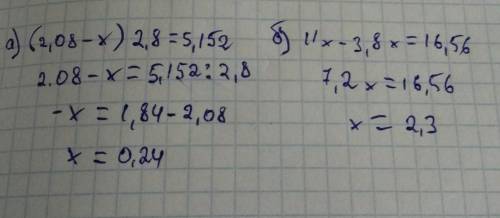 а) (2,08 - x) 2,8 = 5,152
2.08 - x = 5,152 : 2,8
-x = 1,84 - 2,08
x = 0,24
б) 11x - 3,8x = 16,56
7,2x = 16,56
x = 2,3